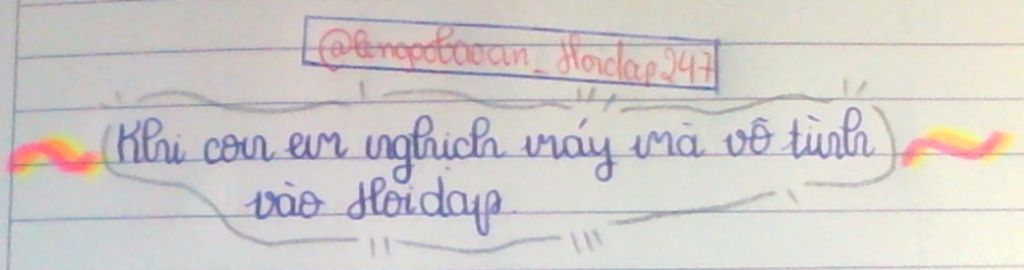 @lengocbaoan_Hoidap247
Khi con em nghịch máy mà vô tình
vào Hoidap